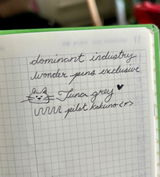 dominant industry
wonder pens exclusive
Tuna grey
pilot kakuno <F>